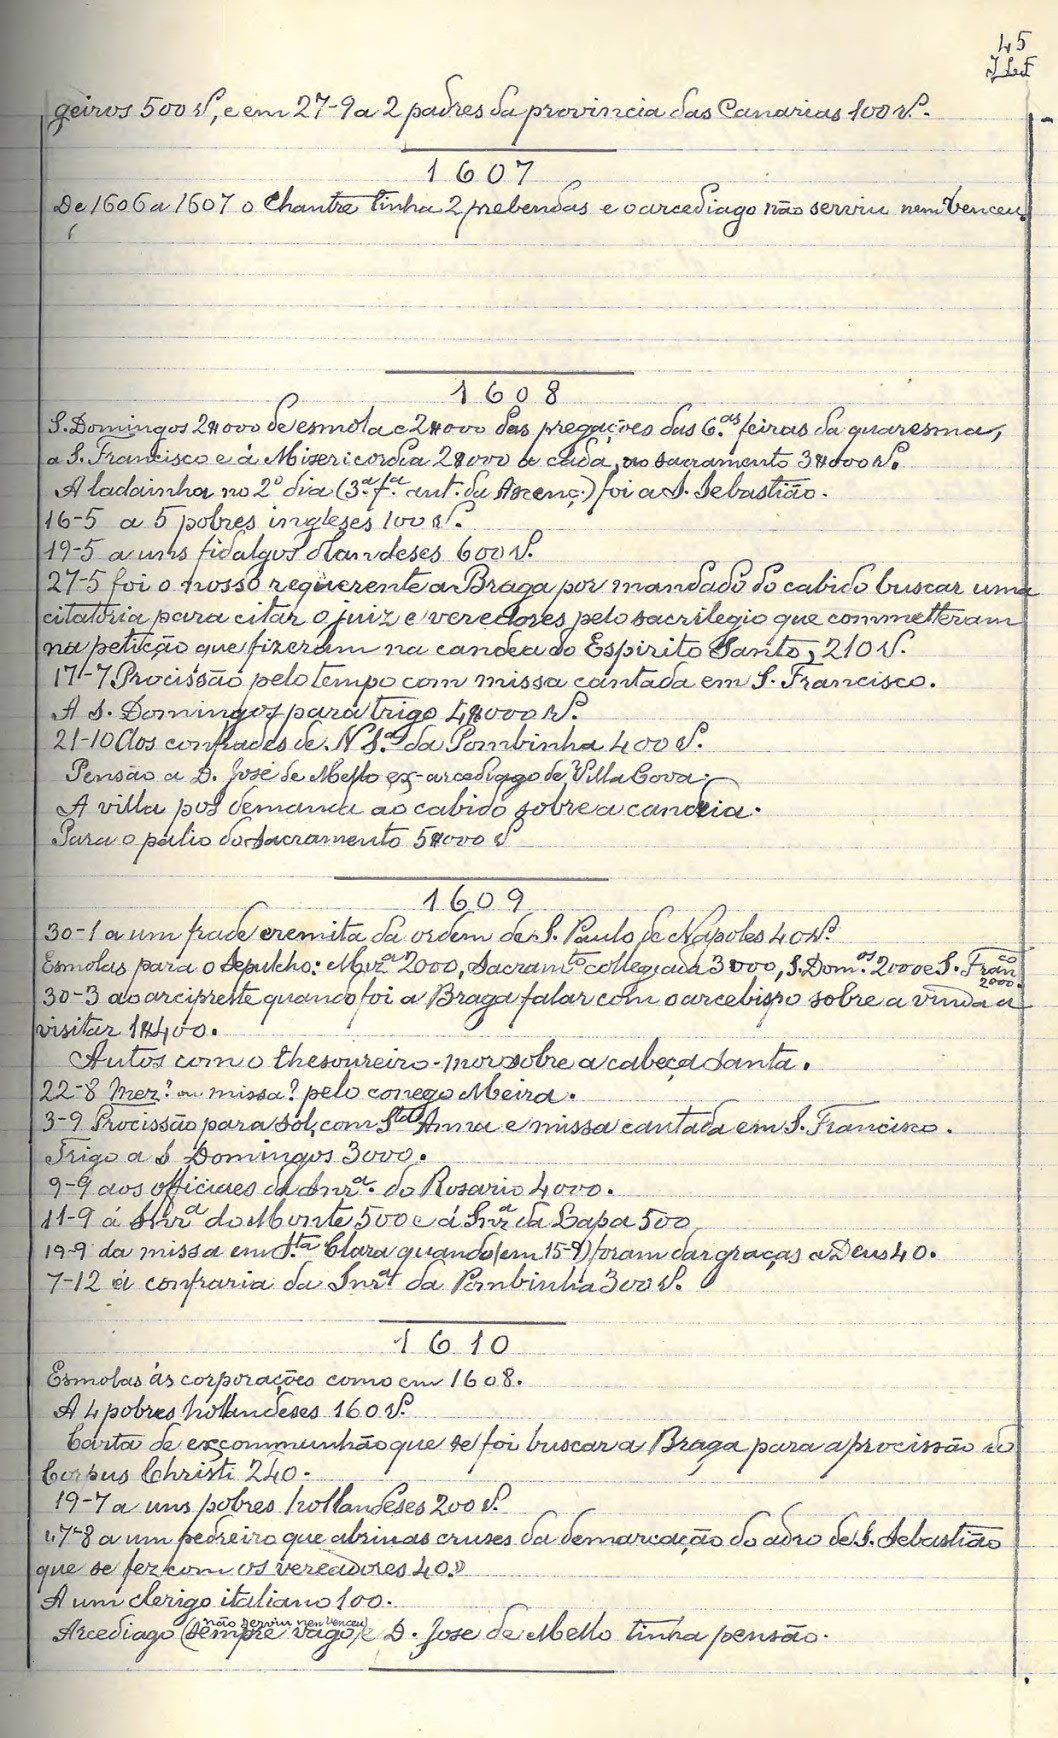 45
geiros 500 rs, e em 27-9 a 2 padres da provincia das Canarias 100 rs.
1607
De 1606 a 1607 o Chantre tinha 2 prebendas e o arcediago não serviu nem venceu.
1608
S. Domingos 2$000 de esmola e 2$000 das pregações das 6.as feiras da quaresma,
a S. Francisco e á Misericordia 2$000 a cada, ao sacramento 3$000 rs.
A ladainha no 2º dia (3.ª f.ª ant. da Ascenç.) foi a S. Sebastião.
16-5 a 5 pobres ingleses 100 rs.
19-5 a uns fidalgos olandeses 600 rs.
27-5 foi o nosso requerente a Braga por mandado do cabido buscar uma
citatoria para citar o juiz e veredores pelo sacrilegio que commetteram
na petição que fizeram na candea do Espirito Santo, 210 rs.
17-7 Procissão pelo tempo com missa cantada em S. Francisco.
A S. Domingos para trigo 4$000 rs.
21-10 Aos confrades de N S.ª da Pombinha 400 rs.
Pensão a D. José de Mello ex-arcediago de Villa Cova.
A villa pos demanda ao cabido sobre a candeia.
Para o pálio do sacramento 5$000 rs
1609
30-1 a um frade eremita da ordem de S. Paulo de Napoles 40 rs.
Esmolas para o Sepulcho: Mizª 2000, Sacramto collegiada 3000, S. Dom.os 2000 e S. Franco 2000.
30-3 ao arcipreste quando foi a Braga falar com o arcebispo sobre a vinda a
visitar 1$400.
Autos com o thesoureiro-mor sobre a cabeça santa.
22-8 Mez? ou missa? pelo conego Meira.
3-9 Procissão para sol, com Sta Anna e missa cantada em S. Francisco.
Trigo a S Domingos 3000.
9-9 aos officiaes da Snrª. do Rosario 4000.
11-9 á Snrª do Monte 500 e á Snrª da Lapa 500
19-9 da missa em S.ta Clara quando (em 15-9) foram dar graças a Deus 40.
7-12 á confraria da Snrª da Pombinha 300 rs.
1610
Esmolas ás corporações como em 1608.
A 4 pobres hollandeses 160 rs.
Carta de excommunhão que se foi buscar a Braga para a procissão do
Corpus Christi 240.
19-7 a uns pobres hollandeses 200 rs.
"7-8 a um pedreiro que abriu as cruses da demarcação do adro de S. Sebastião
que se fez com os vereadores 40."
A um clerigo italiano 100.
não serviu nem venceu
Arcediago (sempre vago) e D. Jose de Mello tinha pensão.